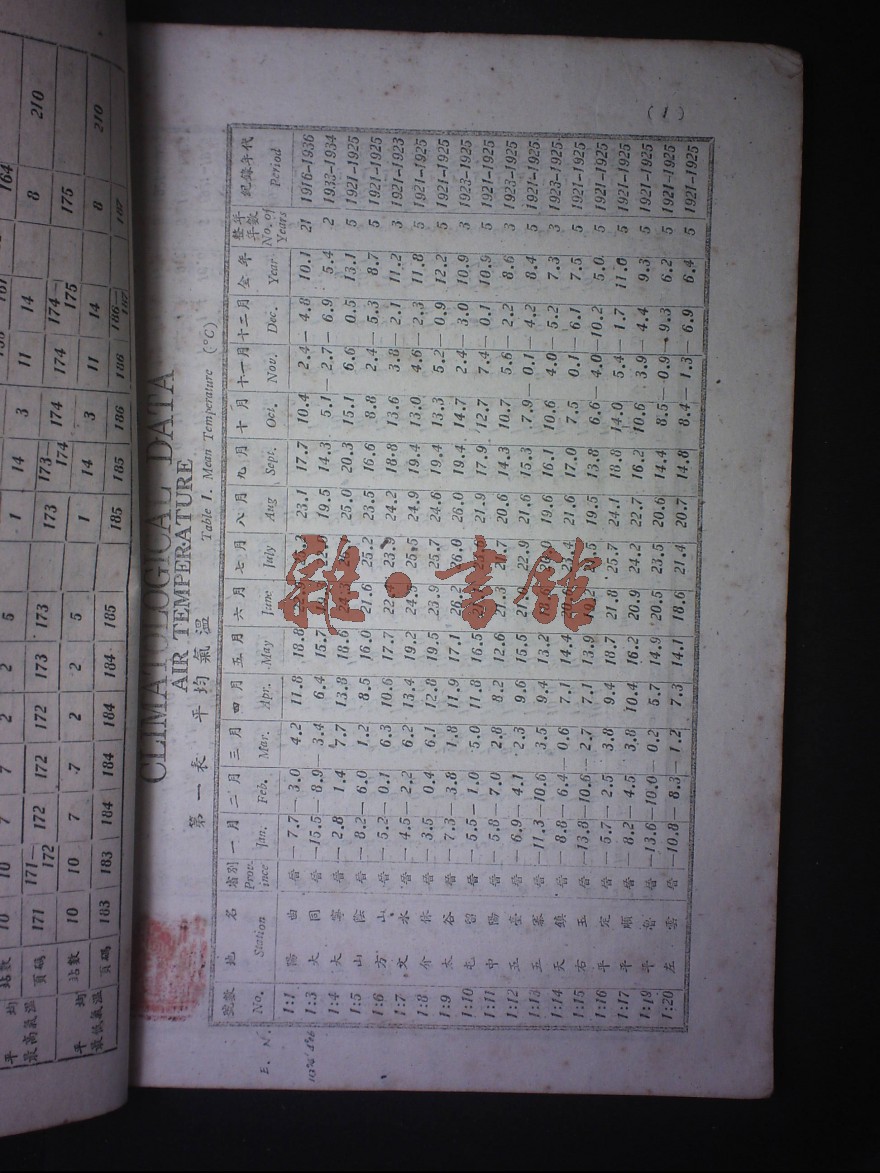 平均最高氣溫 站數 10 10 7 7 2 2 5 1 14 3 11 14 8
頁碼 171 171–172 172 172 172 173 173 173 173–174 174 174 174–175 175 210
平均最低氣溫 站數 10 10 7 7 2 2 5 1 14 3 11 14 8
頁碼 183 183 184 184 184 184 185 185 185 186 186 186–187 187 210
(1)
CLIMATOLOGICAL DATA
AIR TEMPERATURE
第一表 平均氣溫 Table 1. Mean Temperature (°C)
號數 地名 省別 一月 二月 三月 四月 五月 六月 七月 八月 九月 十月 十一月 十二月 全年 整年年數 紀錄年代
No. Station Province Jan. Feb. Mar. Apr. May June July Aug Sept. Oct. Nov. Dec. Year No. of Years Period
1:1 陽曲 晉 –7.7 –3.0 4.2 11.8 18.8 23.1 17.7 10.4 2.4 –4.8 10.1 21 1916–1936
1:3 大同 晉 –15.5 –8.9 –3.4 6.4 15.7 19.5 14.3 5.1 –2.7 –6.9 5.4 2 1933–1934
1:4 大寧 晉 –2.8 1.4 7.7 13.8 18.6 25.0 20.3 15.1 6.6 0.5 13.1 5 1921–1925
1:5 山陰 晉 –8.2 –6.0 1.2 8.5 16.0 21.6 25.2 23.5 16.6 8.8 2.4 –5.3 8.7 5 1921–1925
1:6 方山 晉 –5.2 –0.1 6.3 10.6 17.7 23.9 24.2 18.8 13.6 3.8 –2.1 11.2 3 1921–1923
1:7 文水 晉 –4.5 –2.2 6.2 13.4 19.2 25.5 24.9 19.4 13.0 4.6 –2.3 11.8 5 1921–1925
1:8 介休 晉 –3.5 0.4 6.1 12.8 19.5 23.9 25.7 24.6 19.4 13.3 5.2 –0.9 12.2 5 1921–1925
1:9 太谷 晉 –7.3 –3.8 1.8 11.9 17.1 26.2 26.0 26.0 19.4 14.7 2.4 –3.0 10.9 3 1923–1925
1:10 屯留 晉 –5.5 –1.0 5.0 11.8 16.5 21.9 17.9 12.7 7.4 –0.1 10.9 5 1921–1925
1:11 中陽 晉 –5.8 –7.0 2.8 8.2 12.6 20.6 14.3 10.7 5.6 –2.2 8.6 3 1923–1925
1:12 五臺 晉 –6.9 –4.1 2.3 9.6 15.5 22.9 21.6 15.3 7.9 –0.1 –4.2 8.4 5 1921–1925
1:13 五寨 晉 –11.3 –10.6 3.5 9.4 13.2 19.6 16.1 10.6 4.0 –5.2 7.3 3 1923–1925
1:14 天鎮 晉 –8.8 –6.4 –0.6 7.1 14.4 21.6 17.0 7.5 0.1 –6.1 7.5 5 1921–1925
1:15 右玉 晉 –13.8 –10.6 –2.7 7.1 13.9 19.5 13.8 6.6 –4.0 –10.2 5.0 5 1921–1925
1:16 平定 晉 –5.7 –2.5 3.8 9.4 18.7 21.8 25.7 24.1 18.8 14.0 5.4 –1.7 11.0 5 1921–1925
1:17 平順 晉 –8.2 –4.5 3.8 10.4 16.2 20.9 24.2 22.7 16.2 10.6 3.9 –4.4 9.3 5 1921–1925
1:19 平魯 晉 –13.6 –10.0 –0.2 5.7 14.9 20.5 23.5 20.6 14.4 8.5 –0.9 –9.3 6.2 5 1921–1925
1:20 左雲 晉 –10.8 –8.3 –1.2 7.3 14.1 18.6 21.4 20.7 14.8 8.4 –1.3 –6.9 6.4 5 1921–1925
E. N.